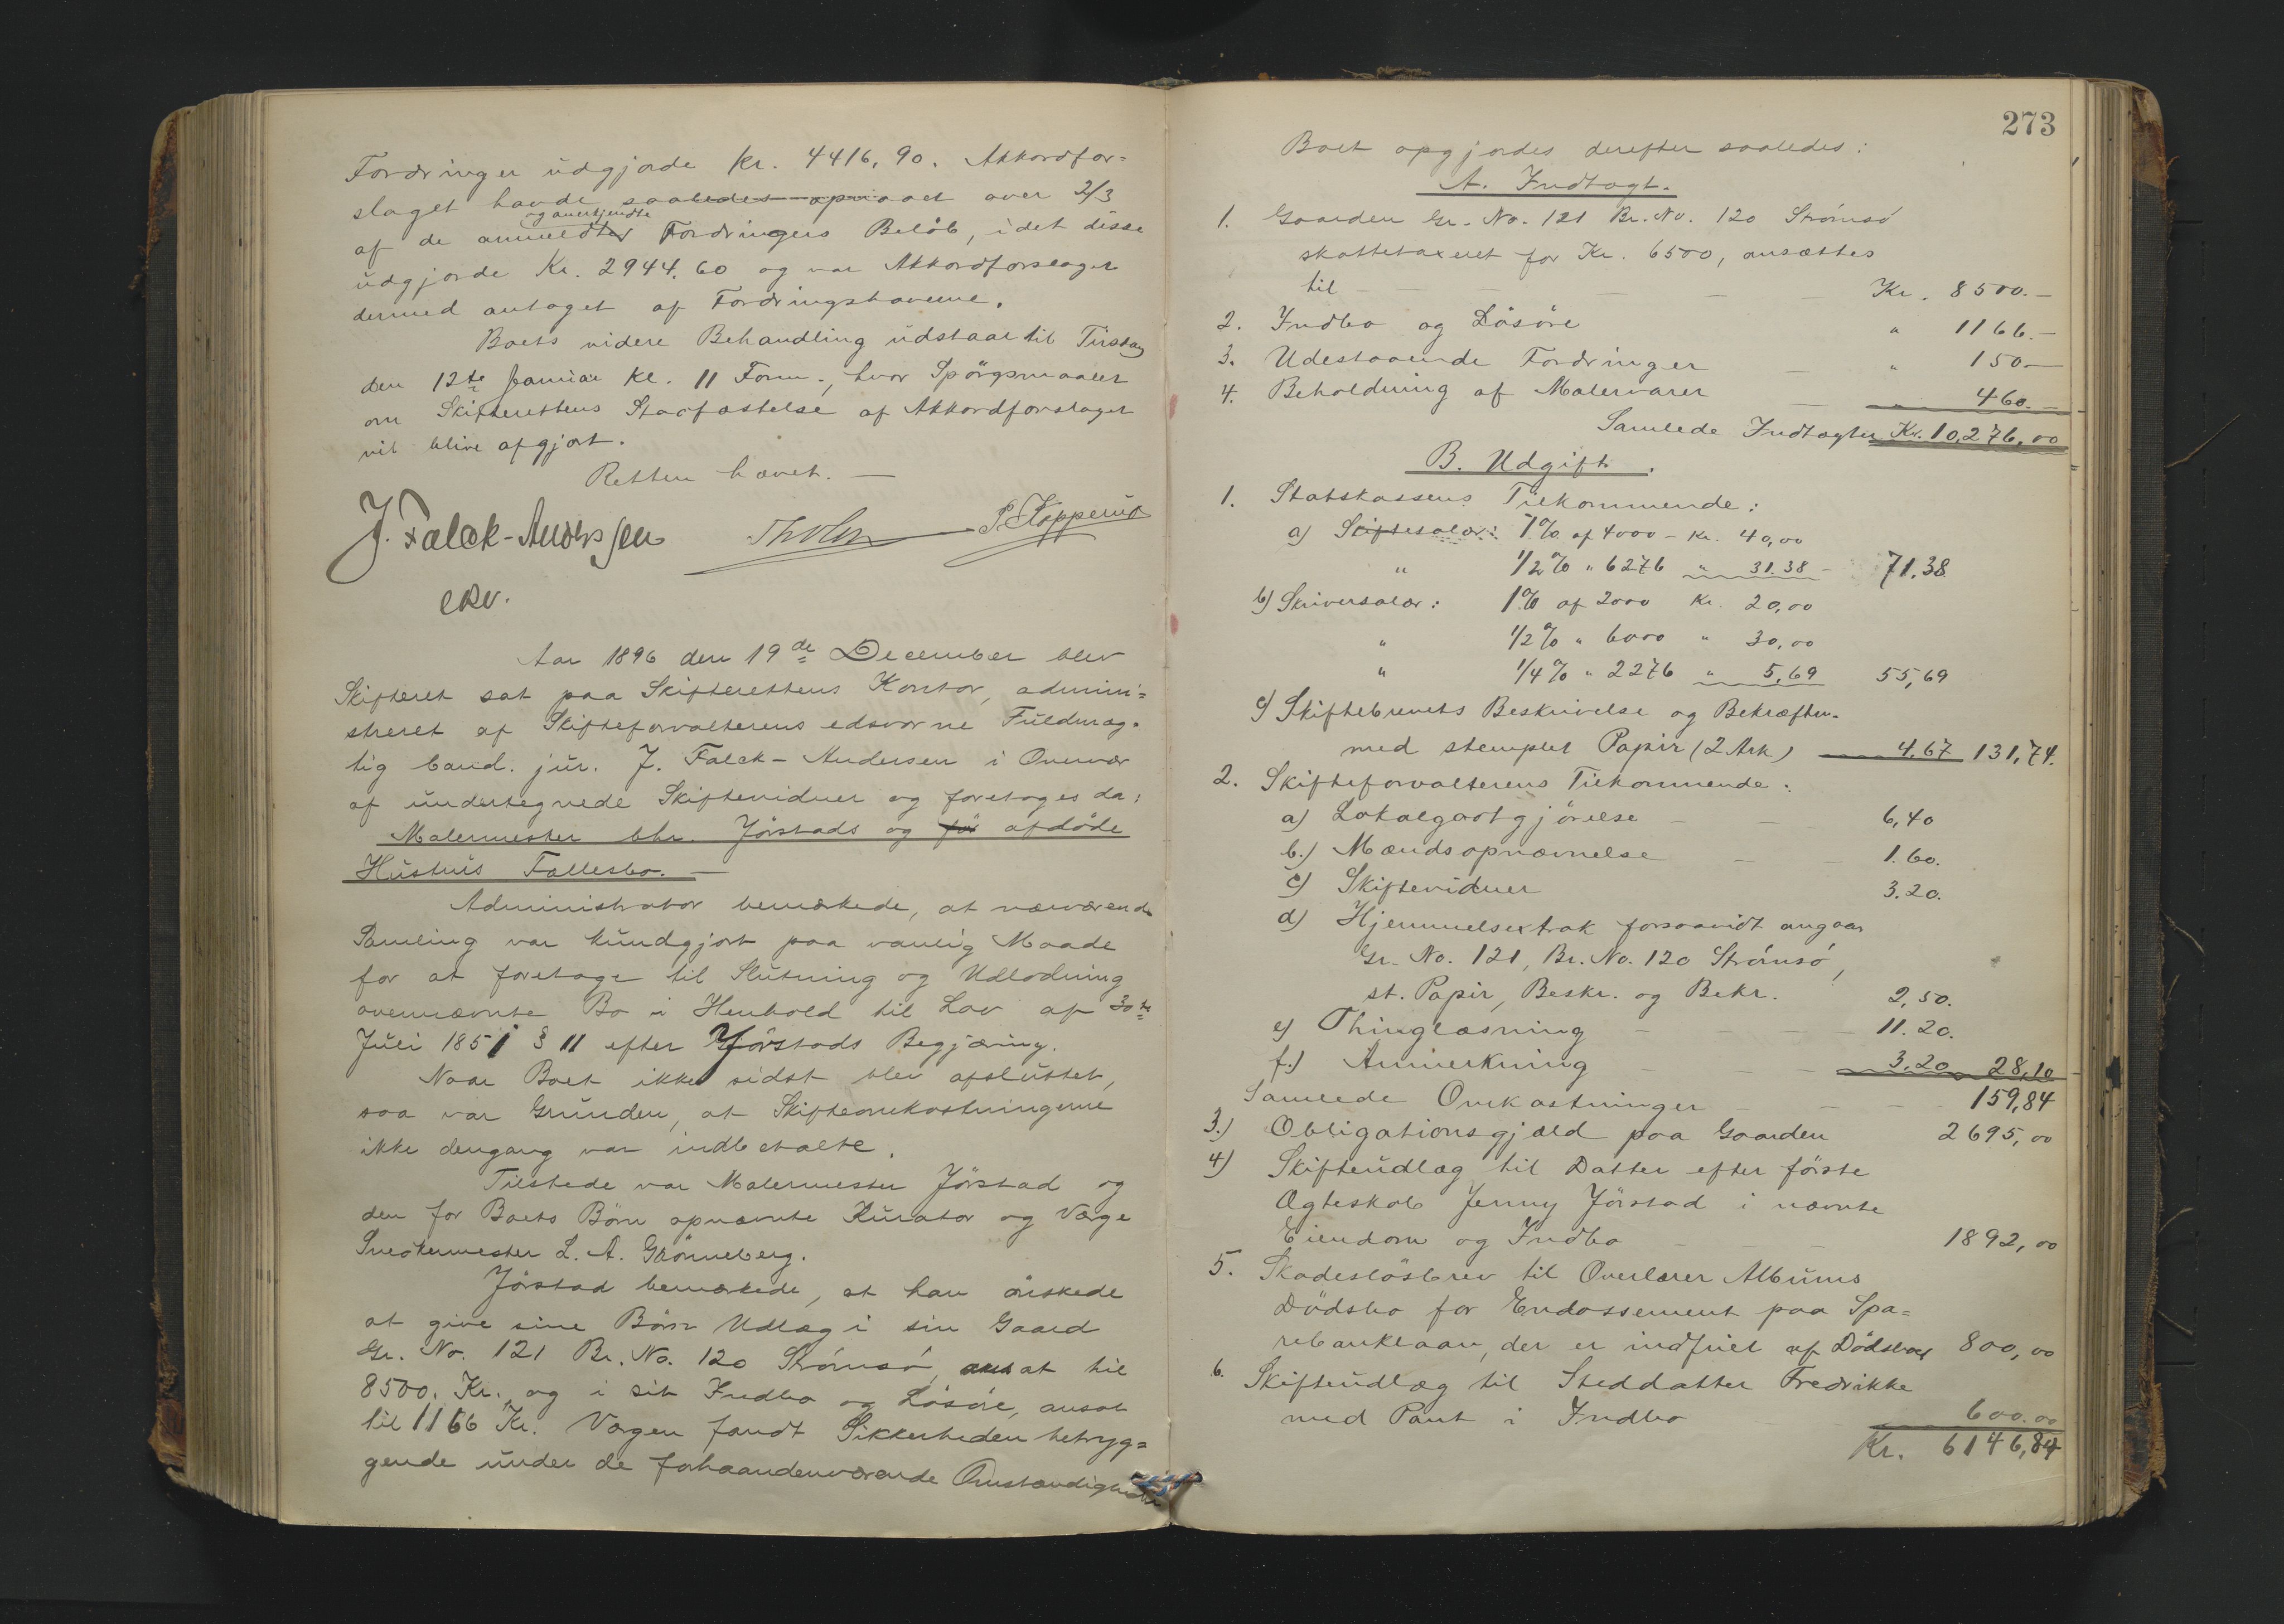 Fordringer udgjorde Kr. 4416,90. Akkordfor=
slaget havde saaledes opnaaet over 2/3
og anerkjendte
af de anmeldte Fordringers Beløb, idet disse
udgjorde Kr. 2944.60 og var Akkordforslaget
dermed antaget af Fordringshaverne.
Boets videre Behandling udstaar til Tirsdag
den 12te Januar Kl. 11 Form., hvor Spørgsmaalet
om Skifterettens Stadfæstelse af Akkordforslaget
vil blive afgjort.
Retten hævet. —
J. Falck-Andersen
P. Kopperud
esv.
Aar 1896 den 19de December blev
Skifteret sat paa Skifterettens Kontor, admini=
streret af Skifteforvalterens edsvorne Fuldmæg=
tig Cand. jur. J. Falck-Andersen i Overvær
af undertegnede Skiftevidner og foretoges da:
Malermester Chr. Jörstads og før afdøde
Hustrus Fællesbo. —
Administrator bemærkede, at nærværende
Samling var kundgjort paa vanlig Maade
for at foretage til Slutning og Udlodning
ovennævnte Bo i Henhold til Lov af 30te
Juli 1851 § 11 efter Jörstads Begjæring.
Naar Boet ikke sidst blev afsluttet,
saa var Grunden, at Skifteomkostningerne
ikke dengang var indbetalte.
Tilstede var Malermester Jörstad og
den for Boets Börn opnævnte Kurator og Værge
Snedkermester L. A. Grönneberg.
Jörstad bemærkede, at han önskede
at give sine Börn Udlæg i sin Gaard
Gr. No. 121 Br. No. 120 Strömsö, ansat til
8500. Kr., og i sit Indbo og Lösöre, ansat
til 1166 Kr. Værgen fandt Sikkerheden betryg=
gende under de forhaandenværende Omstændigheder
273
Boet opgjordes derefter saaledes:
A. Indtægt.
1. Gaarden Gr. No. 121 Br. No. 120 Strömsö
skattetaxeret for Kr. 6500, ansættes
til — — — — — — Kr. 8500.—
2. Indbo og Lösöre " 1166.—
3. Udestaaende Fordringer — " 150.—
4. Beholdning af Malervarer — " 460.—
Samlede Indtægter Kr. 10,276,00
B. Udgift.
1. Statskassens Tilkommende:
a) Skiftesalær: 1% af 4000 - Kr. 40,00
" 1/2% " 6276 " 31.38 - 71.38
b) Skriversalær: 1% af 2000 Kr. 20,00
" 1/2% " 6000 " 30,00
" 1/4% " 2276 " 5,69 55,69
c) Skiftebrevets Beskrivelse og Bekræften.
med stemplet Papir (2 Ark) — 4.67 131,74.
2. Skifteforvalterens Tilkommende:
a) Lokalgodtgjörelse — — 6,40
b.) Mændsopnævnelse — — 1.60.
c) Skiftevidner 3.20.
d) Hjemmelsextrak forsaavidt angaar
Gr. No. 121, Br. No. 120 Strömsö,
st. Papir, Beskr. og Bekr. 2,50.
e) Thinglæsning — — — 11.20.
f.) Anmerkning — — — 3.20 28,10
Samlede Omkostninger — — — 159,84
3.) Obligationsgjæld paa Gaarden 2695,00
4) Skifteudlæg til Datter efter förste
Ægteskab Jenny Jörstad i nævnte
Eiendom og Indbo — — — 1892,00
5. Skadeslösbrev til Overlærer Albums
Dödsbo for Endossement paa Spa=
rebanklaan, der er indfriet af Dödsboet 800,00
6. Skifteudlæg til Steddatter Fredrikke
med Pant i Indbo 600.00
Kr. 6146,84